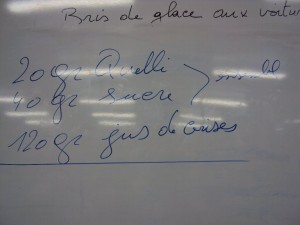 Bris de glace aux voitu
20gr Quelli
40 gr sucre
120gr jus de